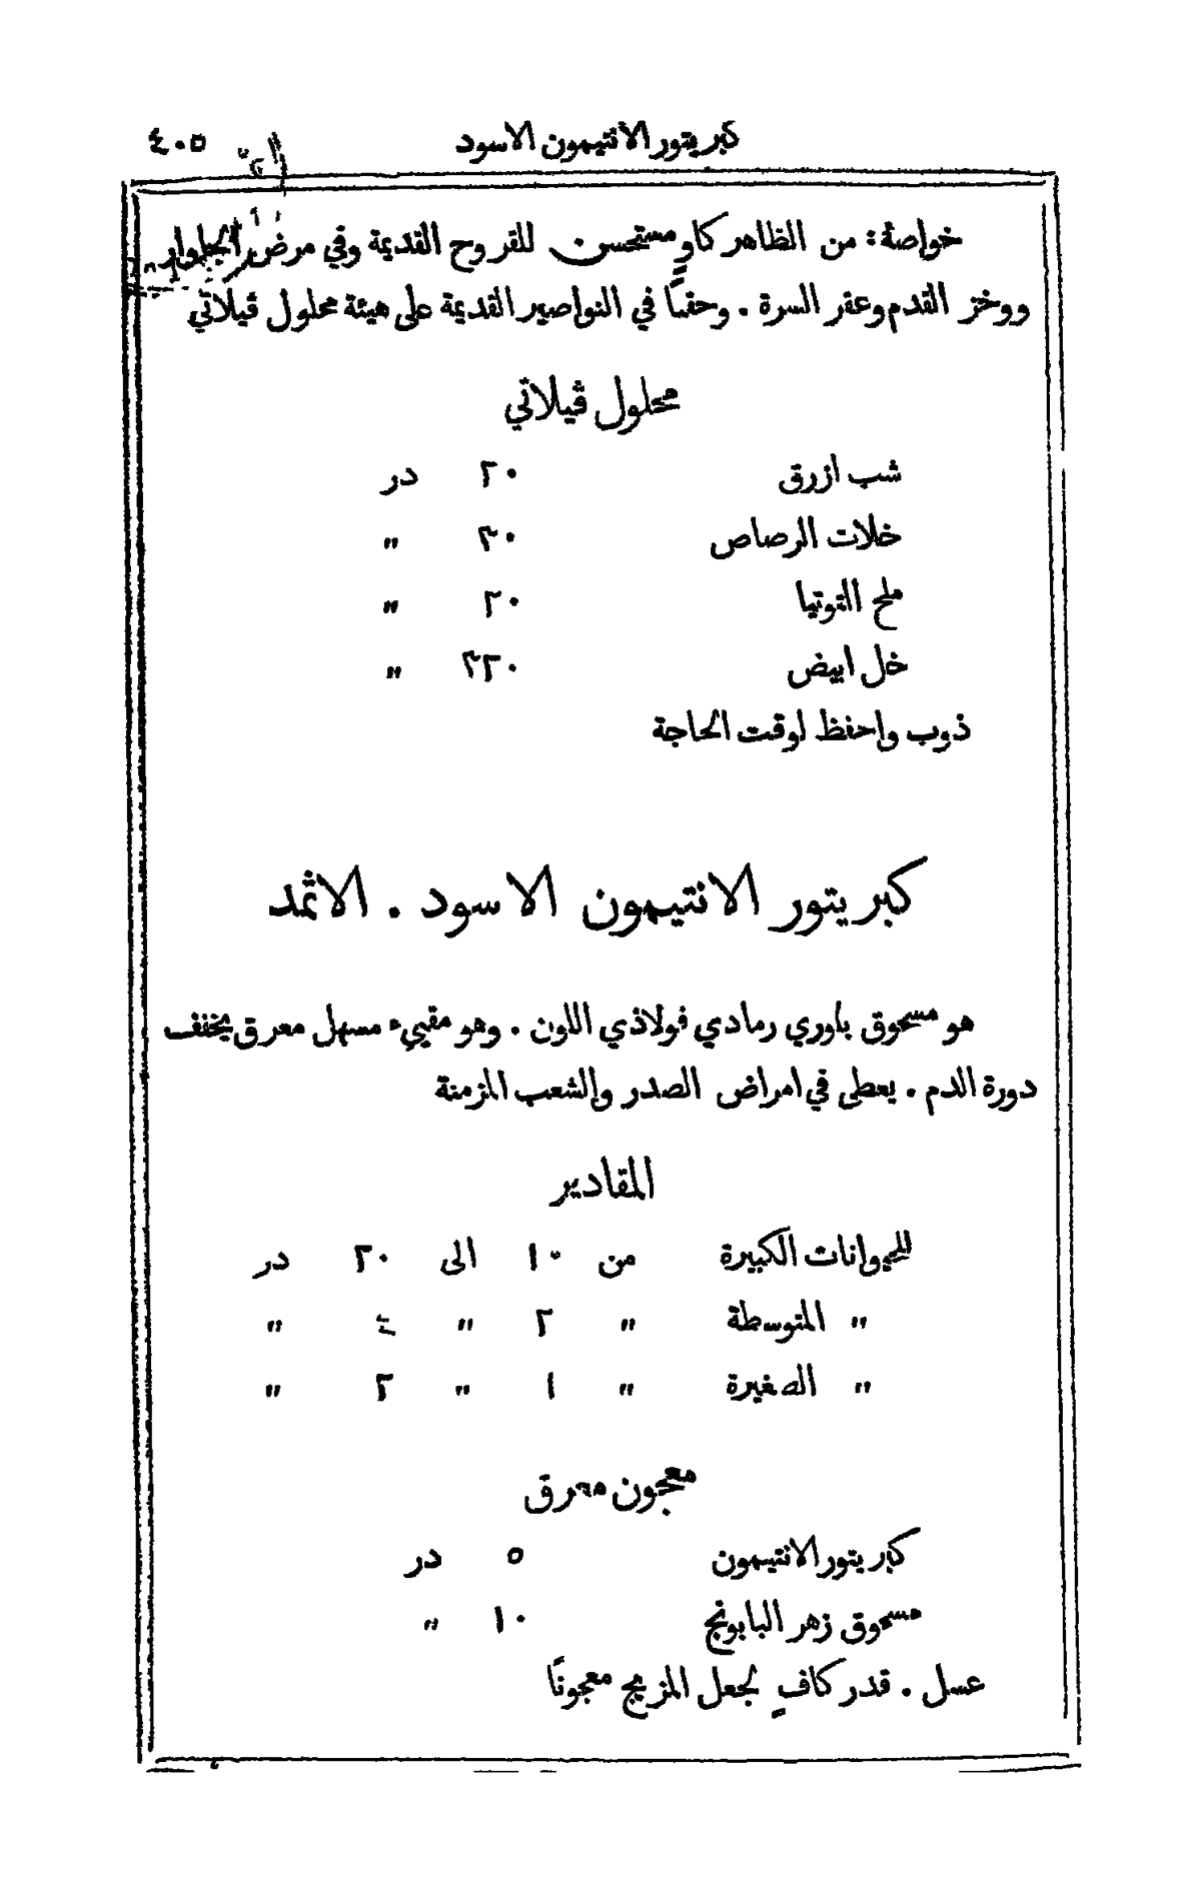 كبريتور الانتيمون الاسود ٤٠٥
خواصهُ: من الظاهر كاوٍ مستحسن للقروح القديمة وفي مرض
ووخز القدم وعقر السرة . وحقنًا في النواصير القديمة على هيئة محلول ڤيلاتي
محلول ڤيلاتي
شب ازرق ٢٠ در
خلات الرصاص ٣٠ "
ملح التوتيا ٢٠ "
خل ابيض ٣٢٠ "
ذوب واحفظ لوقت الحاجة
كبريتور الانتيمون الاسود . الاثمد
هو مسحوق بلوري رمادي فولاذي اللون . وهو مقييء مسهل معرق يخفف
دورة الدم . يعطى في امراض الصدر والشعب المزمنة
المقادير
للحيوانات الكبيرة من ١٠ الى ٢٠ در
" المتوسطة " ٢ " ٤ "
" الصغيرة " ١ " ٢ "
معجون معرق
كبريتور الانتيمون ٥ در
مسحوق زهر البابونج ١٠ "
عسل . قدر كافٍ لجعل المزيج معجونًا